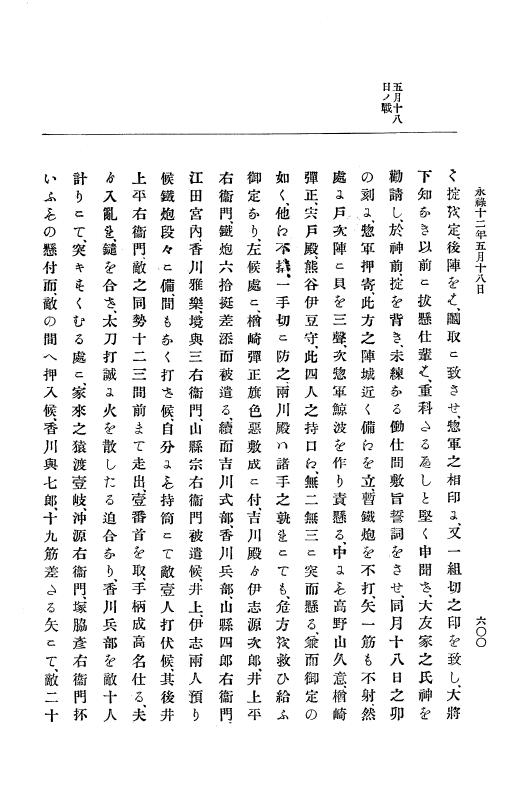 永祿十二年五月十八日
六〇〇
五月十八
日ノ戰
く掟を定、後陣をも、鬮取ニ致させ、惣軍之相印よ、又一組切之印を致し、大將
下知なき以前ニ拔懸仕輩も、重科さるへしと堅く申聞き、大友家之氏神を
勸請し、於神前掟を背き、未練なる働仕間敷旨誓詞をさせ、同月十八日之卯
の刻よ、惣軍押寄、此方之陣城近く備を立、暫鐵炮を不打、矢一筋も不射、然
處よ戸次陣ニ貝を三聲、次惣軍鯨波を作り責懸る、中よも高野山久意、楢崎
彈正、宍戸殿、熊谷伊豆守、此四人之持口、無二無三ニ突而懸る、兼而御定の
如く、他不一手切ニ防之、兩川殿ハ諸手之孰ニても、危方を救ひ給ふ
御定なり、左候處ニ、楢崎彈正旗色惡敷成ニ付、吉川殿より伊志源次郎、井上平
右衞門、鐵炮六拾挺差添而被遣る、續而吉川式部、香川兵部、山縣四郎右衞門、
江田宮内、香川雅樂、境與三右衞門、山縣宗右衞門被遣候、井上、伊志兩人預り
候鐵炮段々ニ備、間もなく打せ候、自分よも持筒ニて敵壹人打伏候、其後井
上平右衞門、敵之同勢十二三間前まて走出、壹番首を取、手柄成高名仕る、夫
より入亂れ、鑓を合き、太刀打誠よ火を散したる迫合なり、香川兵部を敵十人
計りニて、突きくむる處ニ、家來之猿渡壹岐、沖源右衞門、塚脇彦右衞門抔
いふもの懸付而敵の間へ押入候、香川與七郎、十九筋差さる矢ニて、敵二十